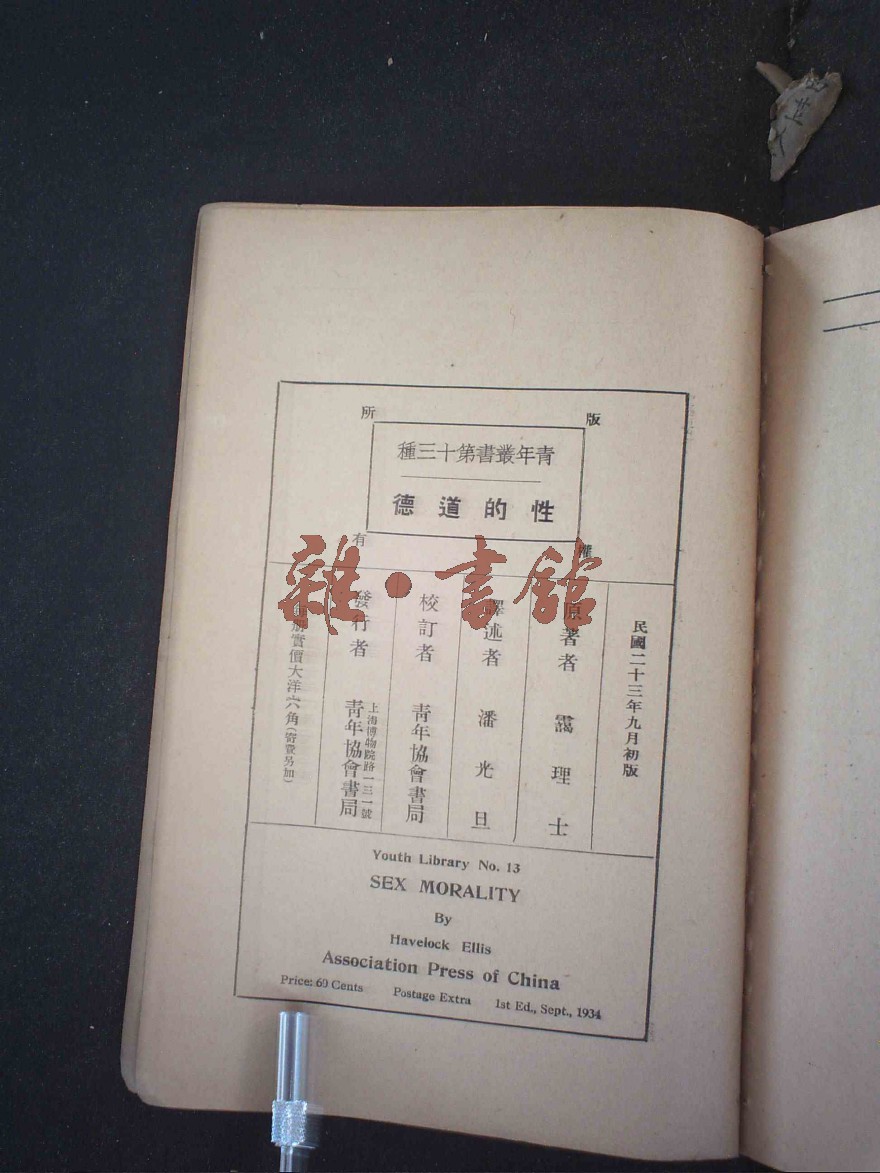 版權所有
青年叢書第十三種
性的道德
民國二十三年九月初版
原著者 靄理士
譯述者 潘光旦
校訂者 青年協會書局
發行者 上海博物院路一三一號
青年協會書局
實價大洋六角（寄費另加）
Youth Library No. 13
SEX MORALITY
By
Havelock Ellis
Association Press of China
Price: 60 Cents Postage Extra 1st Ed., Sept., 1934
雜·書館